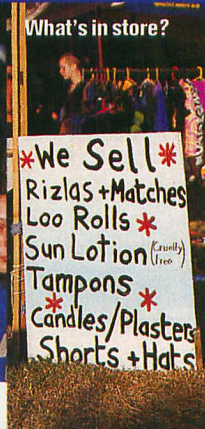 What's in store?
*We Sell*
Rizlas + Matches
Loo Rolls *
Sun Lotion (Cruelty free
Tampons
* Candles/Plasters *
Shorts + Hats